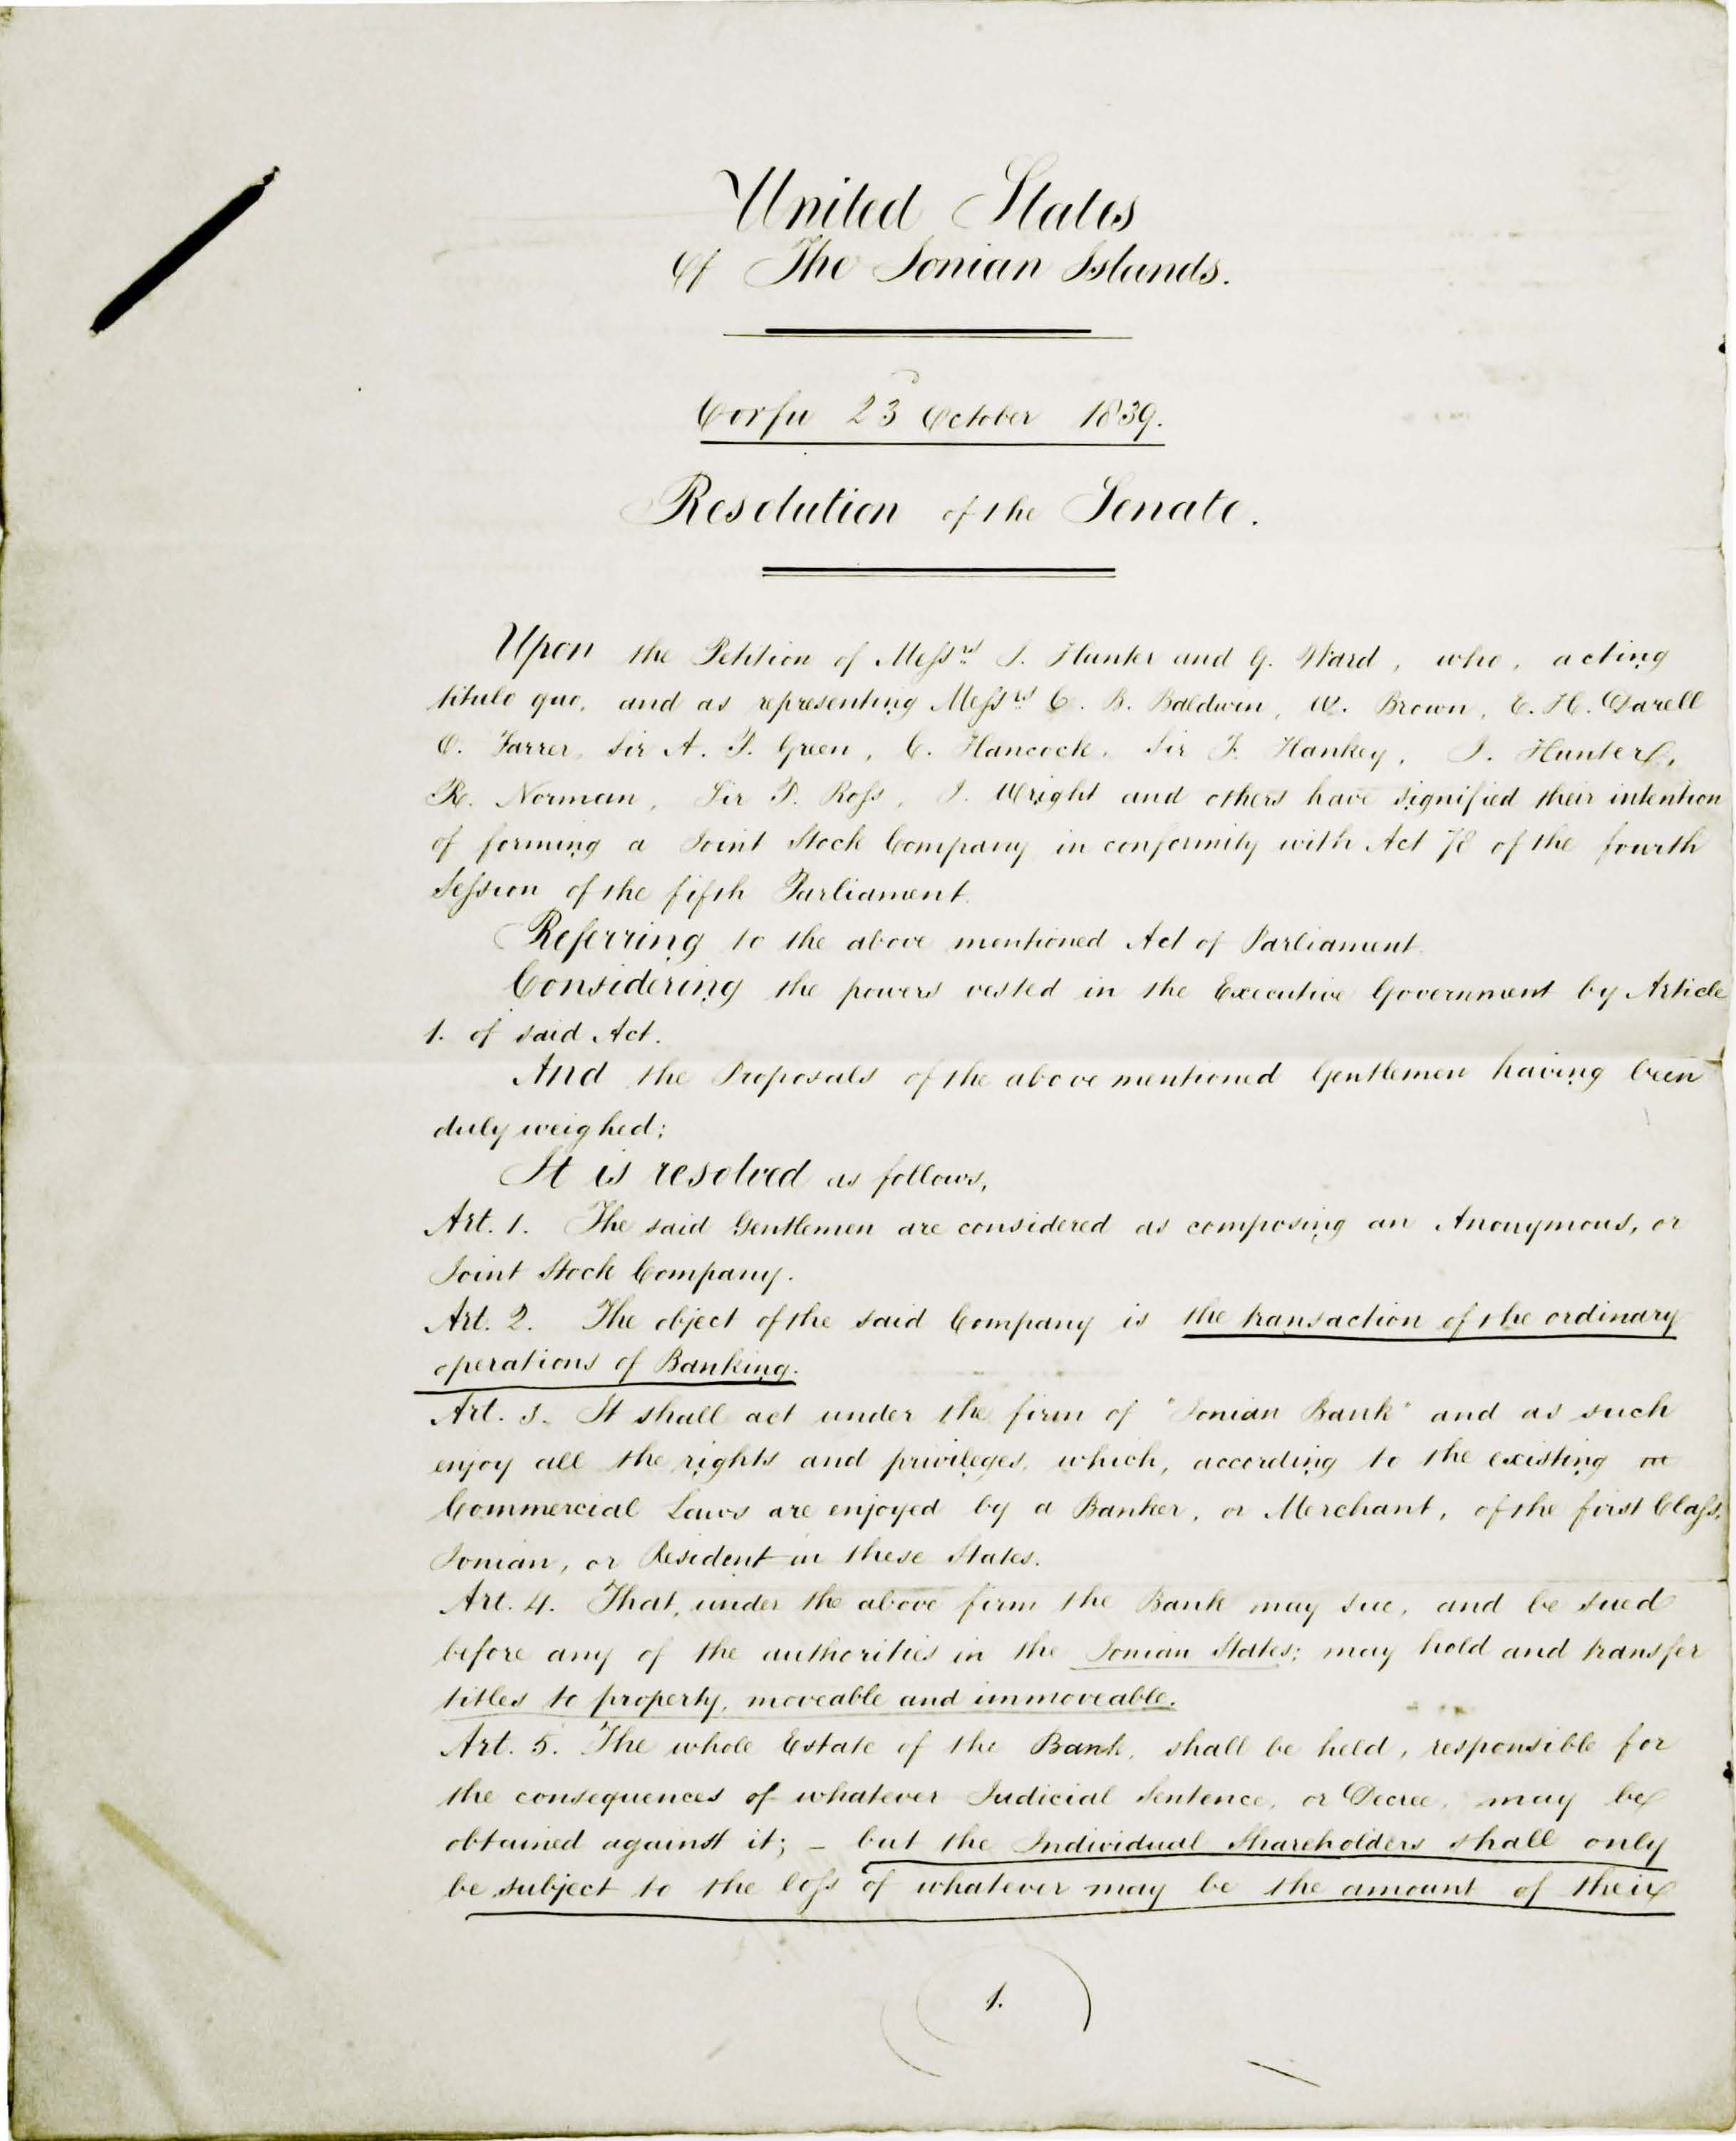 United States
Of The Ionian Islands.
Corfu 23 October 1839.
Resolution of the Senate.
Upon the Petition of Messrs. J. Hunter and G. Ward, who, acting
titulo quo, and as representing Messrs. C. B. Baldwin, W. Brown, E. H. Darell
O. Farrer, Sir A. P. Green, C. Hancock, Sir F. Hankey, J. Hunter,
R. Norman, Sir P. Ross, J. Wright and others have signified their intention
of forming a Joint Stock Company in conformity with Act 78 of the fourth
Session of the fifth Parliament.
Referring to the above mentioned Act of Parliament.
Considering the powers vested in the Executive Government by Article
1. of said Act.
And the Proposals of the above mentioned Gentlemen having been
duly weighed;
It is resolved as follows,
Art. 1. The said Gentlemen are considered as composing an Anonymous, or
Joint Stock Company.
Art. 2. The object of the said Company is the transaction of the ordinary
operations of Banking.
Art. 3. It shall act under the firm of "Ionian Bank" and as such
enjoy all the rights and privileges, which, according to the existing
Commercial Laws are enjoyed by a Banker, or Merchant, of the first Class,
Ionian, or Resident in these States.
Art. 4. That, under the above firm the Bank may sue, and be sued
before any of the authorities in the Ionian States; may hold and transfer
titles to property, moveable and immoveable.
Art. 5. The whole Estate of the Bank, shall be held, responsible for
the consequences of whatever Judicial Sentence, or Decree, may be
obtained against it; - but the Individual Shareholders shall only
be subject to the loss of whatever may be the amount of their
1.